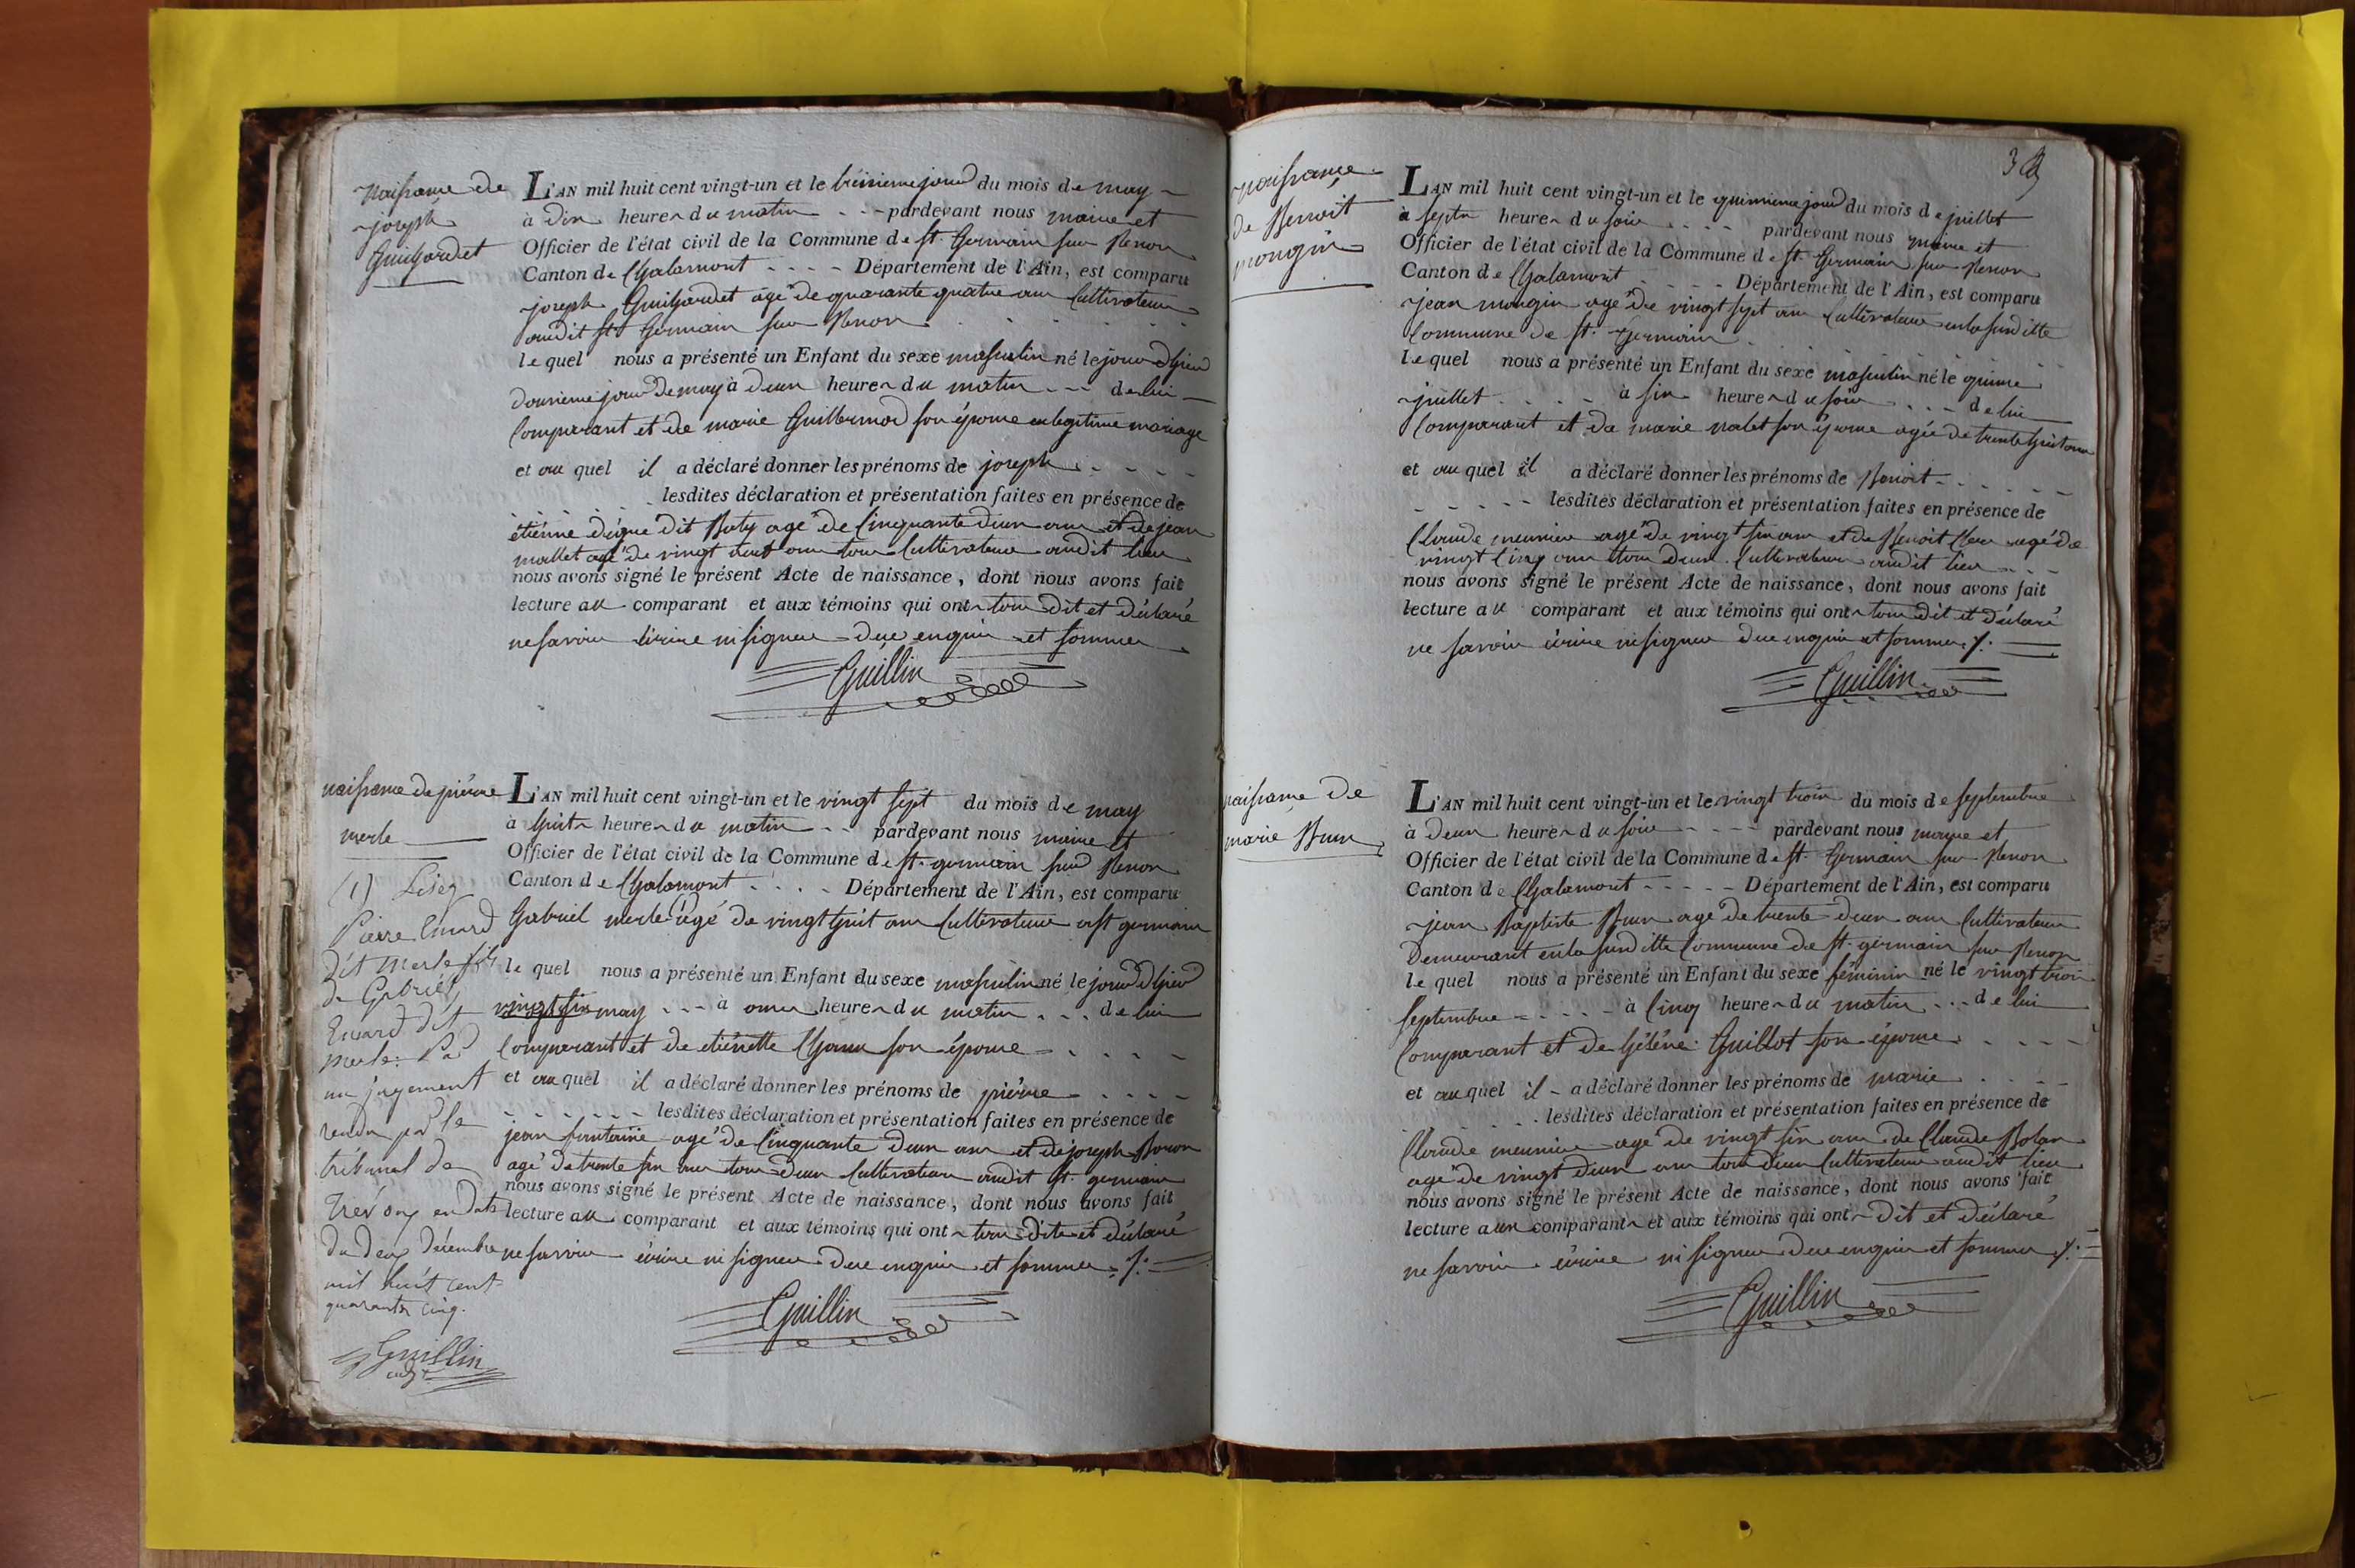 naissance de
joseph
Guichardet
L'AN mil huit cent vingt-un et le treisieme jour du mois de may
à dix heures du matin pardevant nous maire et
Officier de l'état civil de la Commune de st. Germain sur Renon
Canton de Chalamont Département de l'Ain, est comparu
joseph Guichardet agé de quarante quatre ans Cultivateur
audit st Germain sur Renon
le quel nous a présenté un Enfant du sexe masculin né le jour d'hier
douzieme jour de may à deux heures du matin de lui
Comparant et de marie Guillermod son épouse en legitime mariage
et au quel il a déclaré donner les prénoms de joseph
lesdites déclaration et présentation faites en présence de
étiénne dit Baty agé de Cinquante deux ans et de jean
mallet agé de vingt ans tous Cultivateurs audit lieu
nous avons signé le présent Acte de naissance, dont nous avons fait
lecture au comparant et aux témoins qui ont tous dit et déclaré
ne savoir écrire ni signer de ce enquis et sommés
Guillin
naissance de piérre
merle
(1) Lisez
Pierre Enard
dit Merle fils
de Gabriel
Enard dit
merle. Par
un jugement
rendu par le
tribunal de
Trévoux en date
du deux décembre
mil huit cent
quarante cinq.
Guillin
L'AN mil huit cent vingt-un et le vingt sept du mois de may
à huit heures du matin pardevant nous maire et
Officier de l'état civil de la Commune de st. germain sur Renon
Canton de Chalamont Département de l'Ain, est comparu
Gabriel merle (1) agé de vingt huit ans Cultivateur a st germain
le quel nous a présenté un Enfant du sexe masculin né le jour d'hier
vingt six may à onze heures du matin de lui
Comparant et de etiénette son épouse
et au quel il a déclaré donner les prénoms de piérre
lesdites déclaration et présentation faites en présence de
jean fontaine agé de Cinquante deux ans et de joseph
agé de trente six ans tous deux Cultivateurs audit st. germain
nous avons signé le présent Acte de naissance, dont nous avons fait
lecture au comparant et aux témoins qui ont tous dits et déclaré
ne savoir écrire ni signer de ce enquis et sommés
Guillin
naissance
de Benoit
mongin
L'AN mil huit cent vingt-un et le quinzieme jour du mois de juillet
à septs heures du soir pardevant nous maire et
Officier de l'état civil de la Commune de st. Germain sur Renon
Canton de Chalamont Département de l'Ain, est comparu
jean mongin agé de vingt sept ans Cultivateur en la susditte
Commune de st. Germain
le quel nous a présenté un Enfant du sexe masculin né le quinze
juillet à six heures du soir de lui
Comparant et de marie nalet son épouse agée de trente huit ans
et au quel il a déclaré donner les prénoms de Benoit
lesdites déclaration et présentation faites en présence de
Claude meunier agé de vingt six ans et de Benoit agé de
vingt Cinq ans tous deux Cultivateurs audit lieu
nous avons signé le présent Acte de naissance, dont nous avons fait
lecture au comparant et aux témoins qui ont tous dit et déclaré
ne savoir écrire ni signer de ce enquis et sommés
Guillin
naissance de
marie Brun
L'AN mil huit cent vingt-un et le vingt trois du mois de septembre
à deux heures du soir pardevant nous maire et
Officier de l'état civil de la Commune de st. Germain sur Renon
Canton de Chalamont Département de l'Ain, est comparu
jean Baptiste Brun agé de trente deux ans Cultivateur
demeurant en la susditte Commune de st. germain sur Renon
le quel nous a présenté un Enfant du sexe féminin né le vingt trois
septembre à Cinq heures du matin de lui
Comparant et de héléne Guillot son épouse
et au quel il a déclaré donner les prénoms de marie
lesdites déclaration et présentation faites en présence de
Claude meunier agé de vingt six ans de Claude
agé de vingt deux ans tous deux Cultivateurs audit lieu
nous avons signé le présent Acte de naissance, dont nous avons fait
lecture aux comparants et aux témoins qui ont dit et déclaré
ne savoir écrire ni signer de ce enquis et sommés
Guillin